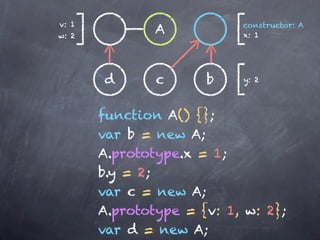 v: 1
w: 2
A
constructor: A
x: 1
d
c
b
y: 2
function A() {};
var b = new A;
A.prototype.x = 1;
b.y = 2;
var c = new A;
A.prototype = {v: 1, w: 2};
var d = new A;